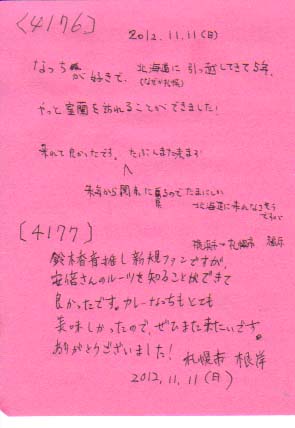 〈4176〉
2012.11.11(日)
なっちが好きで、北海道に引っ越してきて5年、
(なぜか札幌)
やっと室蘭を訪れることができました!
来れて良かったです。たぶんまた来ます!
来年から関東に戻るので
北海道に来れなさそう
〔4177〕
横浜→札幌市
鈴木香音推し新規ファンですが、
安倍さんのルーツを知ることができて
良かったです。カレーなっちもとても
美味しかったので、ぜひまた来たいです。
ありがとうございました! 札幌市 根岸
2012.11.11(日)